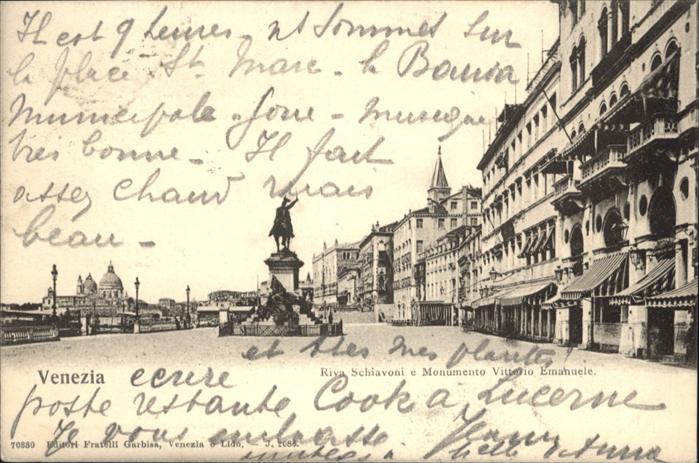 Il est 9 heures - nt sommes sur
la place St. Marc - la Banda
Municipale joue - musique
très bonne - Il fait
assez chaud mais
beau -
et
Riva Schiavoni e Monumento Vittorio Emanuele.
Venezia
ecrire
poste restante Cook a Lucerne
70330 Editori Fratelli Garbisa, Venezia e Lido, J. 2088.
Je vous embrasse